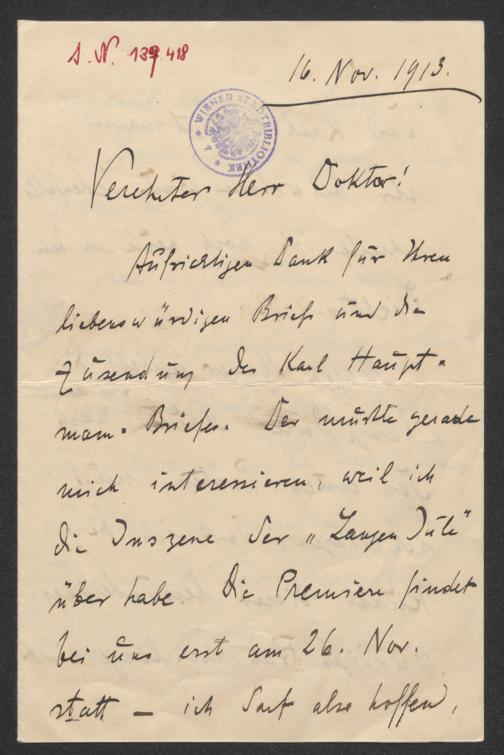 I. N. 139.418
16. Nov. 1913.
WIENER STADTBIBLIOTHEK
Verehrter Herr Doktor!
Aufrichtigen Dank für Ihren
liebenswürdigen Brief und die
Zusendung des Karl Haupt-
mann-Briefes. Der mußte gerade
mich interessieren, weil ich
die Inszene der „Langen Jule"
über habe. Die Premiere findet
bei uns erst am 26. Nov.
statt – ich darf also hoffen,